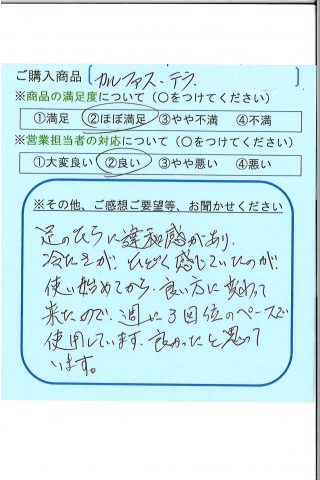 ご購入商品 ガルファス・テラ
※商品の満足度について（○をつけてください）
①満足 ②ほぼ満足 ③やや不満 ④不満
※営業担当者の対応について（○をつけてください）
①大変良い ②良い ③やや悪い ④悪い
※その他、ご感想ご要望等、お聞かせください
足のうらに違和感があり、
冷たさが、ひどく感じていたのが
使い始めてから、良い方に変わって
来たので、週に3回位のペースで
使用しています。良かったと思って
います。